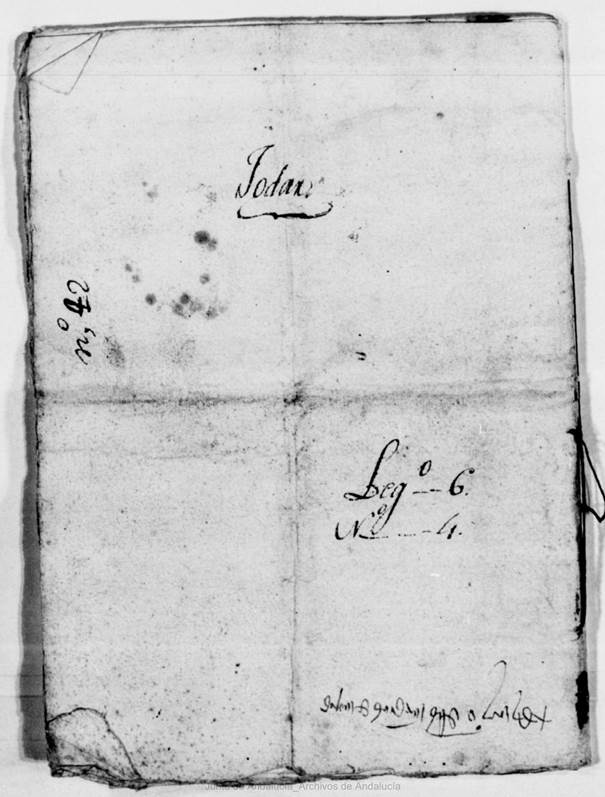 Jodar.
n.º 42
Legº — 6.
Nº — 4.
Junta de Andalucía_Archivos de Andalucía